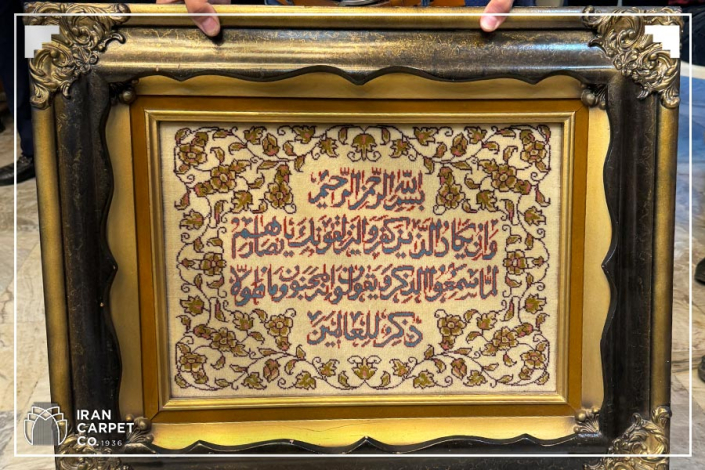 بسم الله الرحمن الرحيم
وان يكاد الذين كفروا ليزلقونك بابصارهم
لما سمعوا الذكر ويقولون انه لمجنون وما هو الا
ذكر للعالمين
IRAN
CARPET
CO. 1936